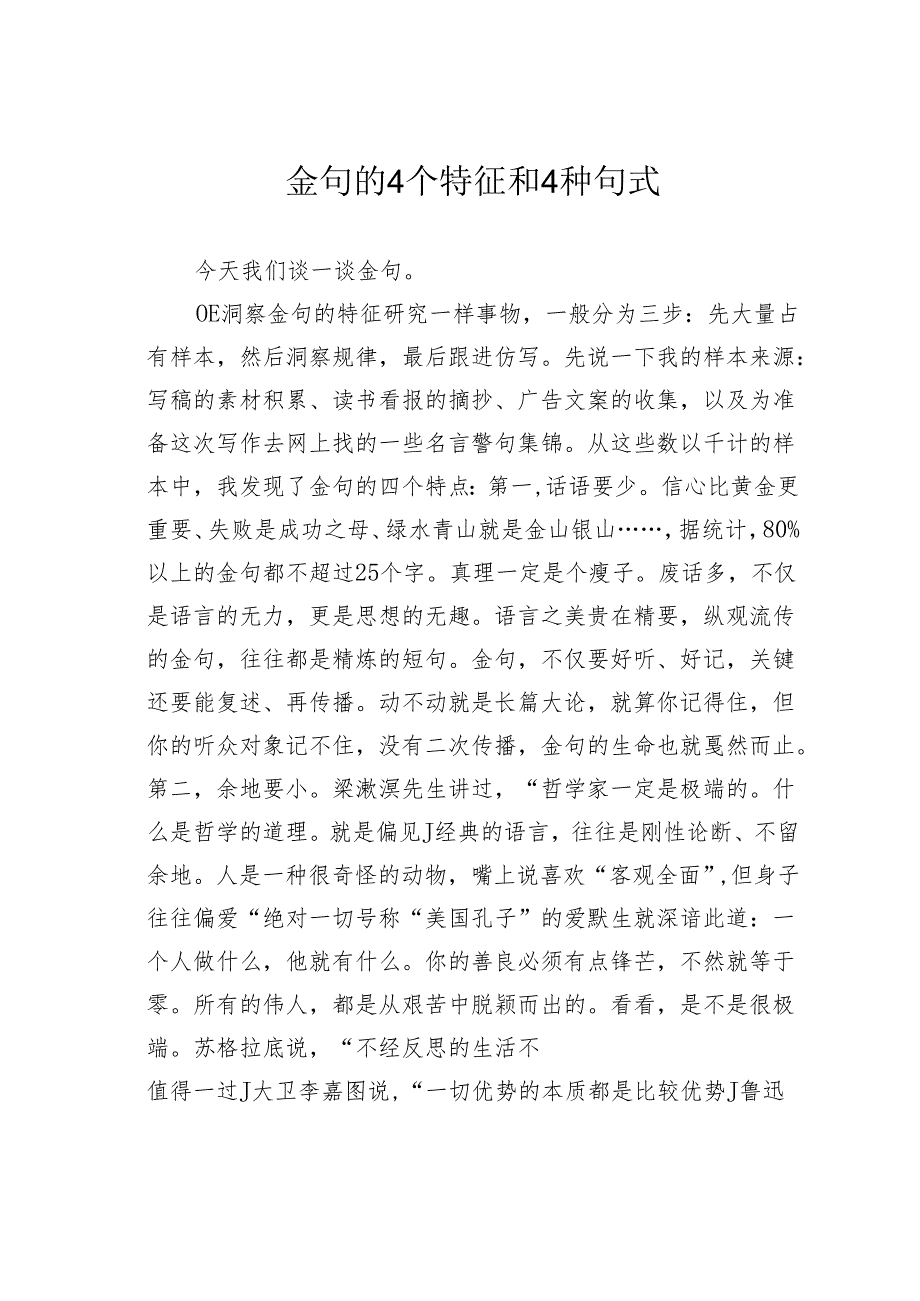 金句的4个特征和4种句式
今天我们谈一谈金句。
OE洞察金句的特征研究一样事物，一般分为三步：先大量占
有样本，然后洞察规律，最后跟进仿写。先说一下我的样本来源：
写稿的素材积累、读书看报的摘抄、广告文案的收集，以及为准
备这次写作去网上找的一些名言警句集锦。从这些数以千计的样
本中，我发现了金句的四个特点：第一,话语要少。信心比黄金更
重要、失败是成功之母、绿水青山就是金山银山……，据统计，80%
以上的金句都不超过25个字。真理一定是个瘦子。废话多，不仅
是语言的无力，更是思想的无趣。语言之美贵在精要，纵观流传
的金句，往往都是精炼的短句。金句，不仅要好听、好记，关键
还要能复述、再传播。动不动就是长篇大论，就算你记得住，但
你的听众对象记不住，没有二次传播，金句的生命也就戛然而止。
第二，余地要小。梁漱溟先生讲过，“哲学家一定是极端的。什
么是哲学的道理。就是偏见J经典的语言，往往是刚性论断、不留
余地。人是一种很奇怪的动物，嘴上说喜欢“客观全面”,但身子
往往偏爱“绝对一切号称“美国孔子”的爱默生就深谙此道：一
个人做什么，他就有什么。你的善良必须有点锋芒，不然就等于
零。所有的伟人，都是从艰苦中脱颖而出的。看看，是不是很极
端。苏格拉底说，“不经反思的生活不
值得一过J大卫李嘉图说,“一切优势的本质都是比较优势J鲁迅